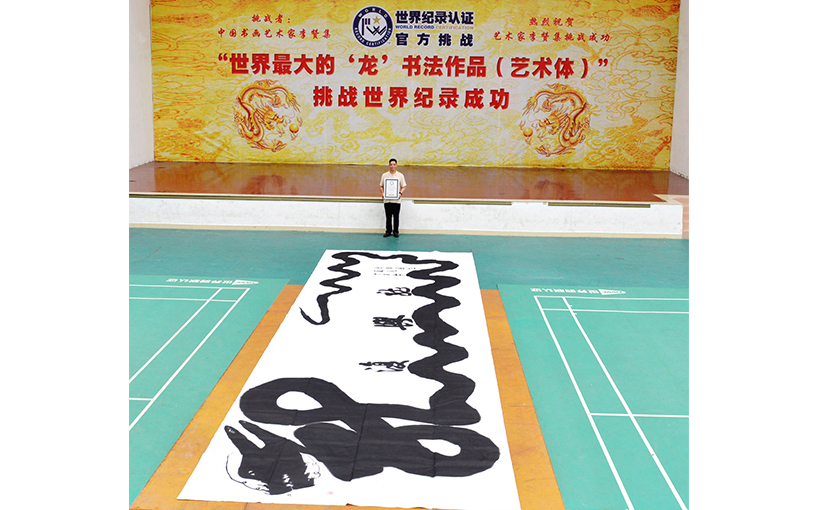 挑战者：
中国书画艺术家李贤集
世界纪录认证
WORLD RECORD CERTIFICATION
官方挑战
热烈祝贺
艺术家李贤集挑战成功
“世界最大的‘龙’书法作品（艺术体）”
挑战世界纪录成功